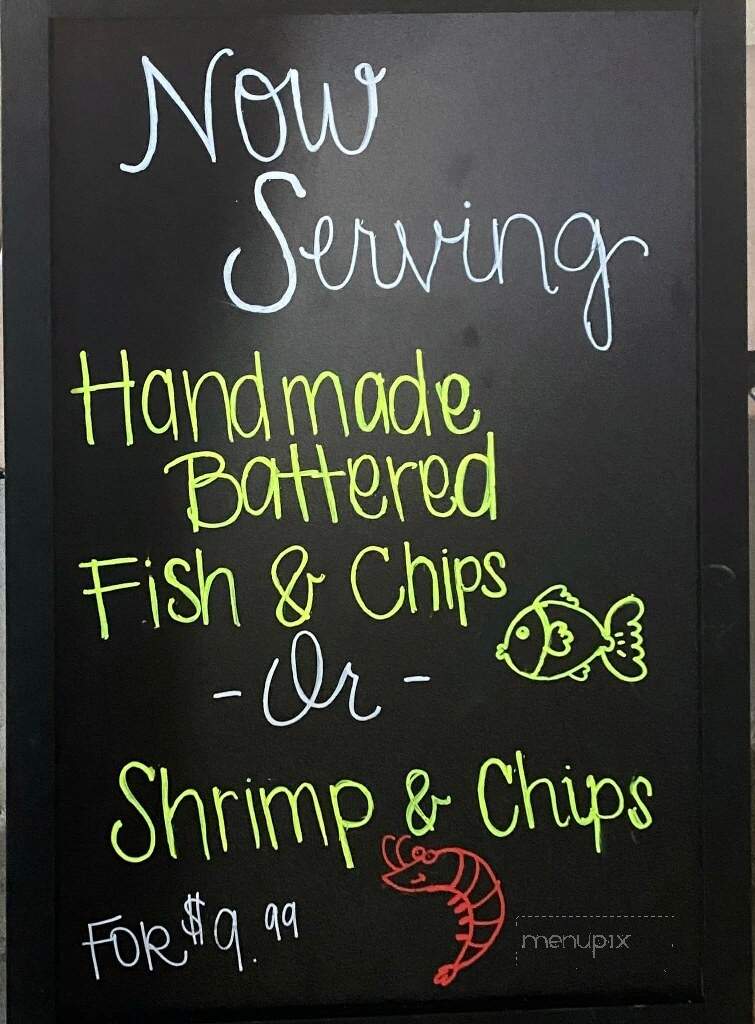 Now
Serving
Handmade
Battered
Fish & Chips
- Or -
Shrimp & Chips
FOR $9.99
menupix